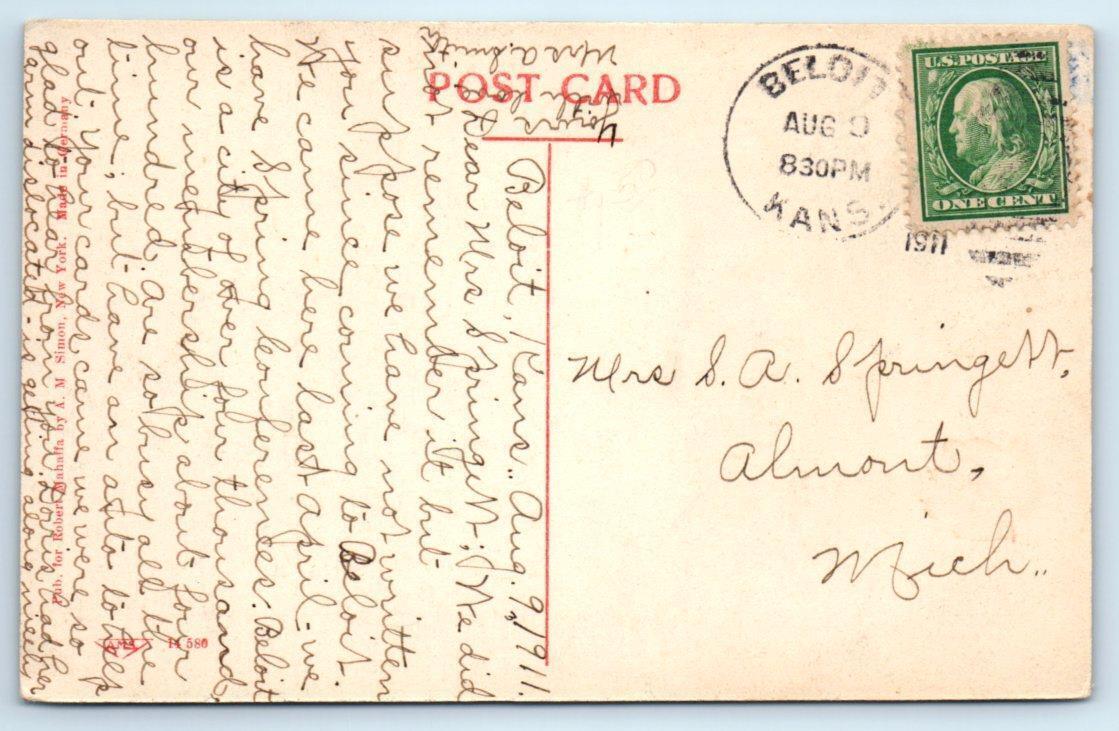 POST CARD
BELOIT
AUG 9
830PM
KANS.
1911
U.S. POSTAGE
ONE CENT
Mrs S. A. Springett,
Almont,
Mich..
Beloit, Kans.. Aug. 9, 1911.
Dear Mrs Springett; We did
not remember it but
suppose we have not written
you since coming to Beloit.
We came here last April - we
have Spring Conferences. Beloit
is a city of over four thousand,
our membership about four
hundred, are so busy all the
time, but have an auto to help
out. Your cards came we were so
glad to hear from you. had her
arm dislocated - is getting along nicely
Yours
Mrs A. Smith
Pub. for Robert Mahaffa by A. M Simon, New York. Made in Germany
AMS 14 580